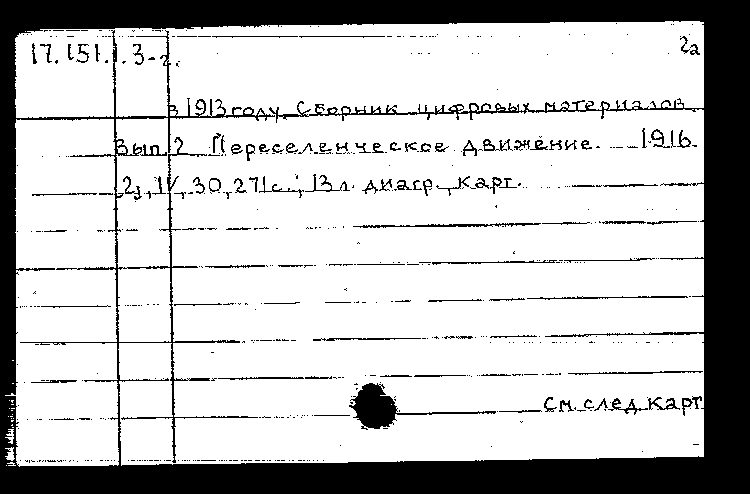 17.151.1.3-2. 2а
в 1913 году. Сборник цифровых материалов.
Вып. 2 Переселенческое движение. 1916.
2, IV, 30, 271 с.; 13 л. диагр., карт.
см. след. карт